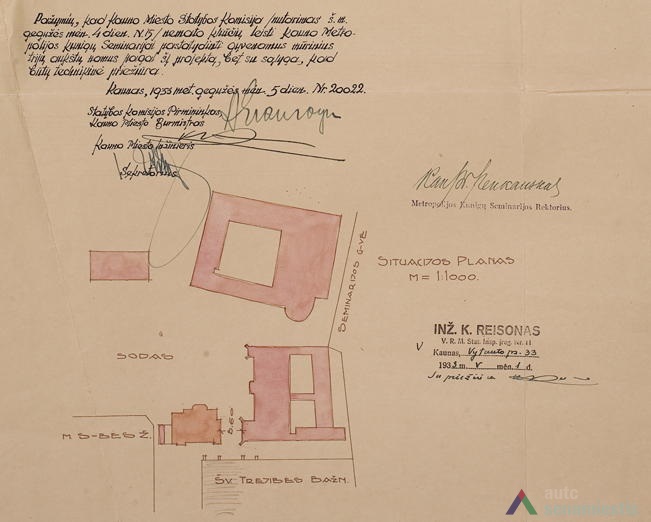 Pažymiu, kad Kauno Miesto Statybos Komisija /nutarimas š.m.
gegužės mėn. 4 dien. N.15/ nemato kliūčių, leisti Kauno Metro-
polijos Kunigų Seminarijai pastatydinti gyvenamus mūrinius
trijų aukštų namus pagal šį projektą, bet su sąlyga, kad
būtų techninė priežiūra.
Kaunas, 1933 met. gegužės mėn. 5 dien. Nr. 20022.
Statybos Komisijos Pirmininkas,
Kauno Miesto Burmistras
Kauno Miesto Inžinieris
Sekretorius
Metropolijos Kunigų Seminarijos Rektorius.
SITUACIJOS PLANAS
M = 1:1000.
SEMINARIJOS G-VĖ
INŽ. K. REISONAS
V. R. M. Stat. Insp. įreg. Nr. 11
Kaunas, Vytauto pr. 33
1933 m. V mėn. 1 d.
SODAS
M S-BĖS Ž.
ŠV. TREJIBĖS BAŽN.
autc